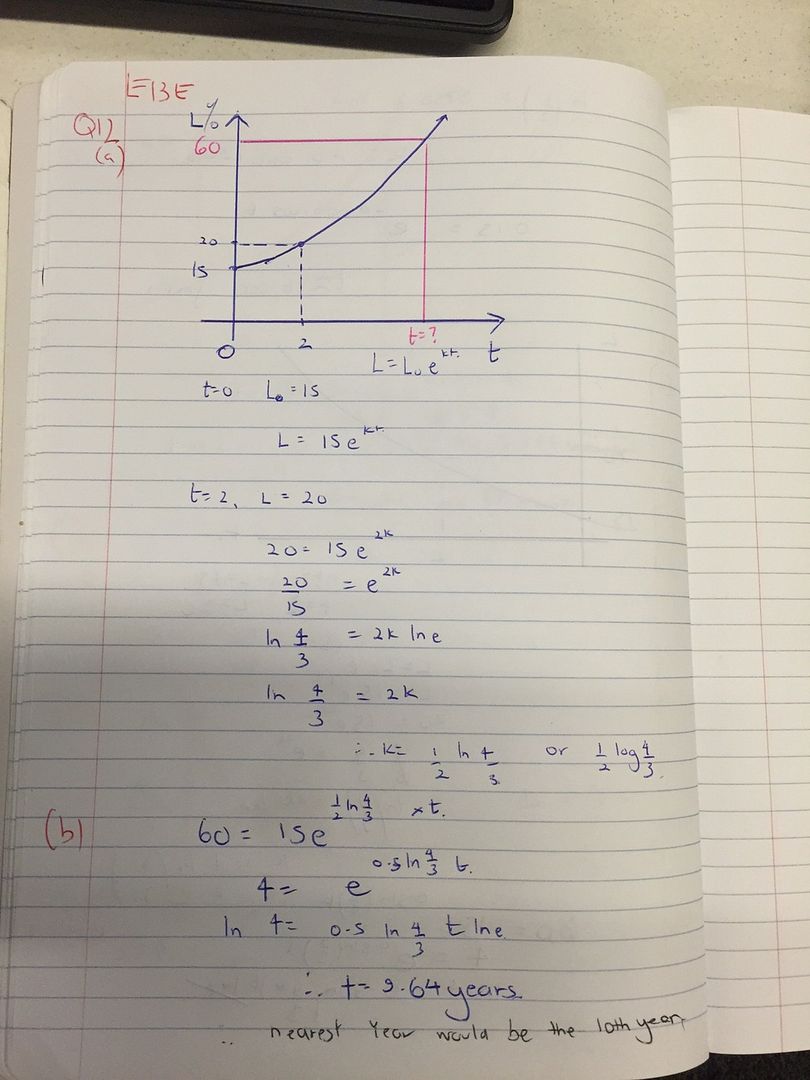 E13E
Q12
(a)
L%
60
20
15
0 2 t=? t
L = L₀e^kt
t=0 L₀ = 15
L = 15e^kt
t=2, L = 20
20 = 15e^2k
20/15 = e^2k
ln 4/3 = 2k lne
ln 4/3 = 2k
∴ k = 1/2 ln 4/3 or 1/2 log 4/3
(b) 60 = 15e^(1/2 ln 4/3 × t.)
4 = e^(0.5 ln 4/3 t.)
ln 4 = 0.5 ln 4/3 t lne
∴ t = 9.64 years.
∴ nearest Year would be the 10th year.